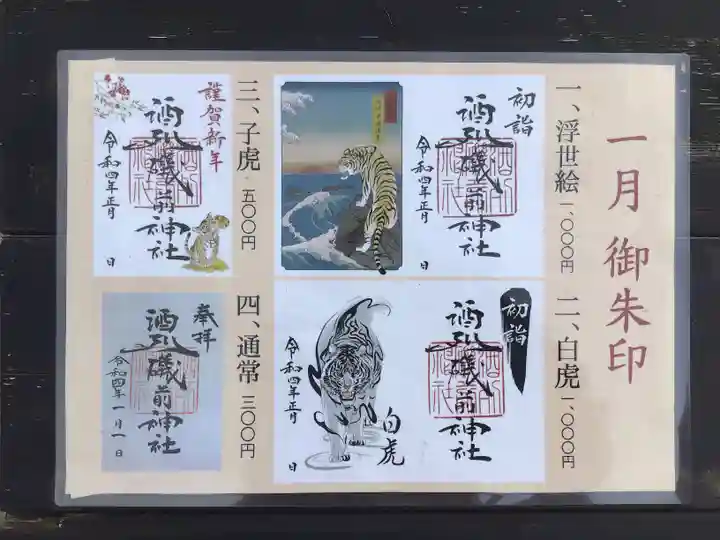 一月 御朱印
一、浮世絵 一、〇〇〇円
初詣
酒列磯前神社
令和四年正月 日
二、白虎 一、〇〇〇円
初詣
酒列磯前神社
白虎
令和四年正月 日
三、子虎 五〇〇円
謹賀新年
酒列磯前神社
令和四年正月 日
四、通常 三〇〇円
奉拝
酒列磯前神社
令和四年一月一日